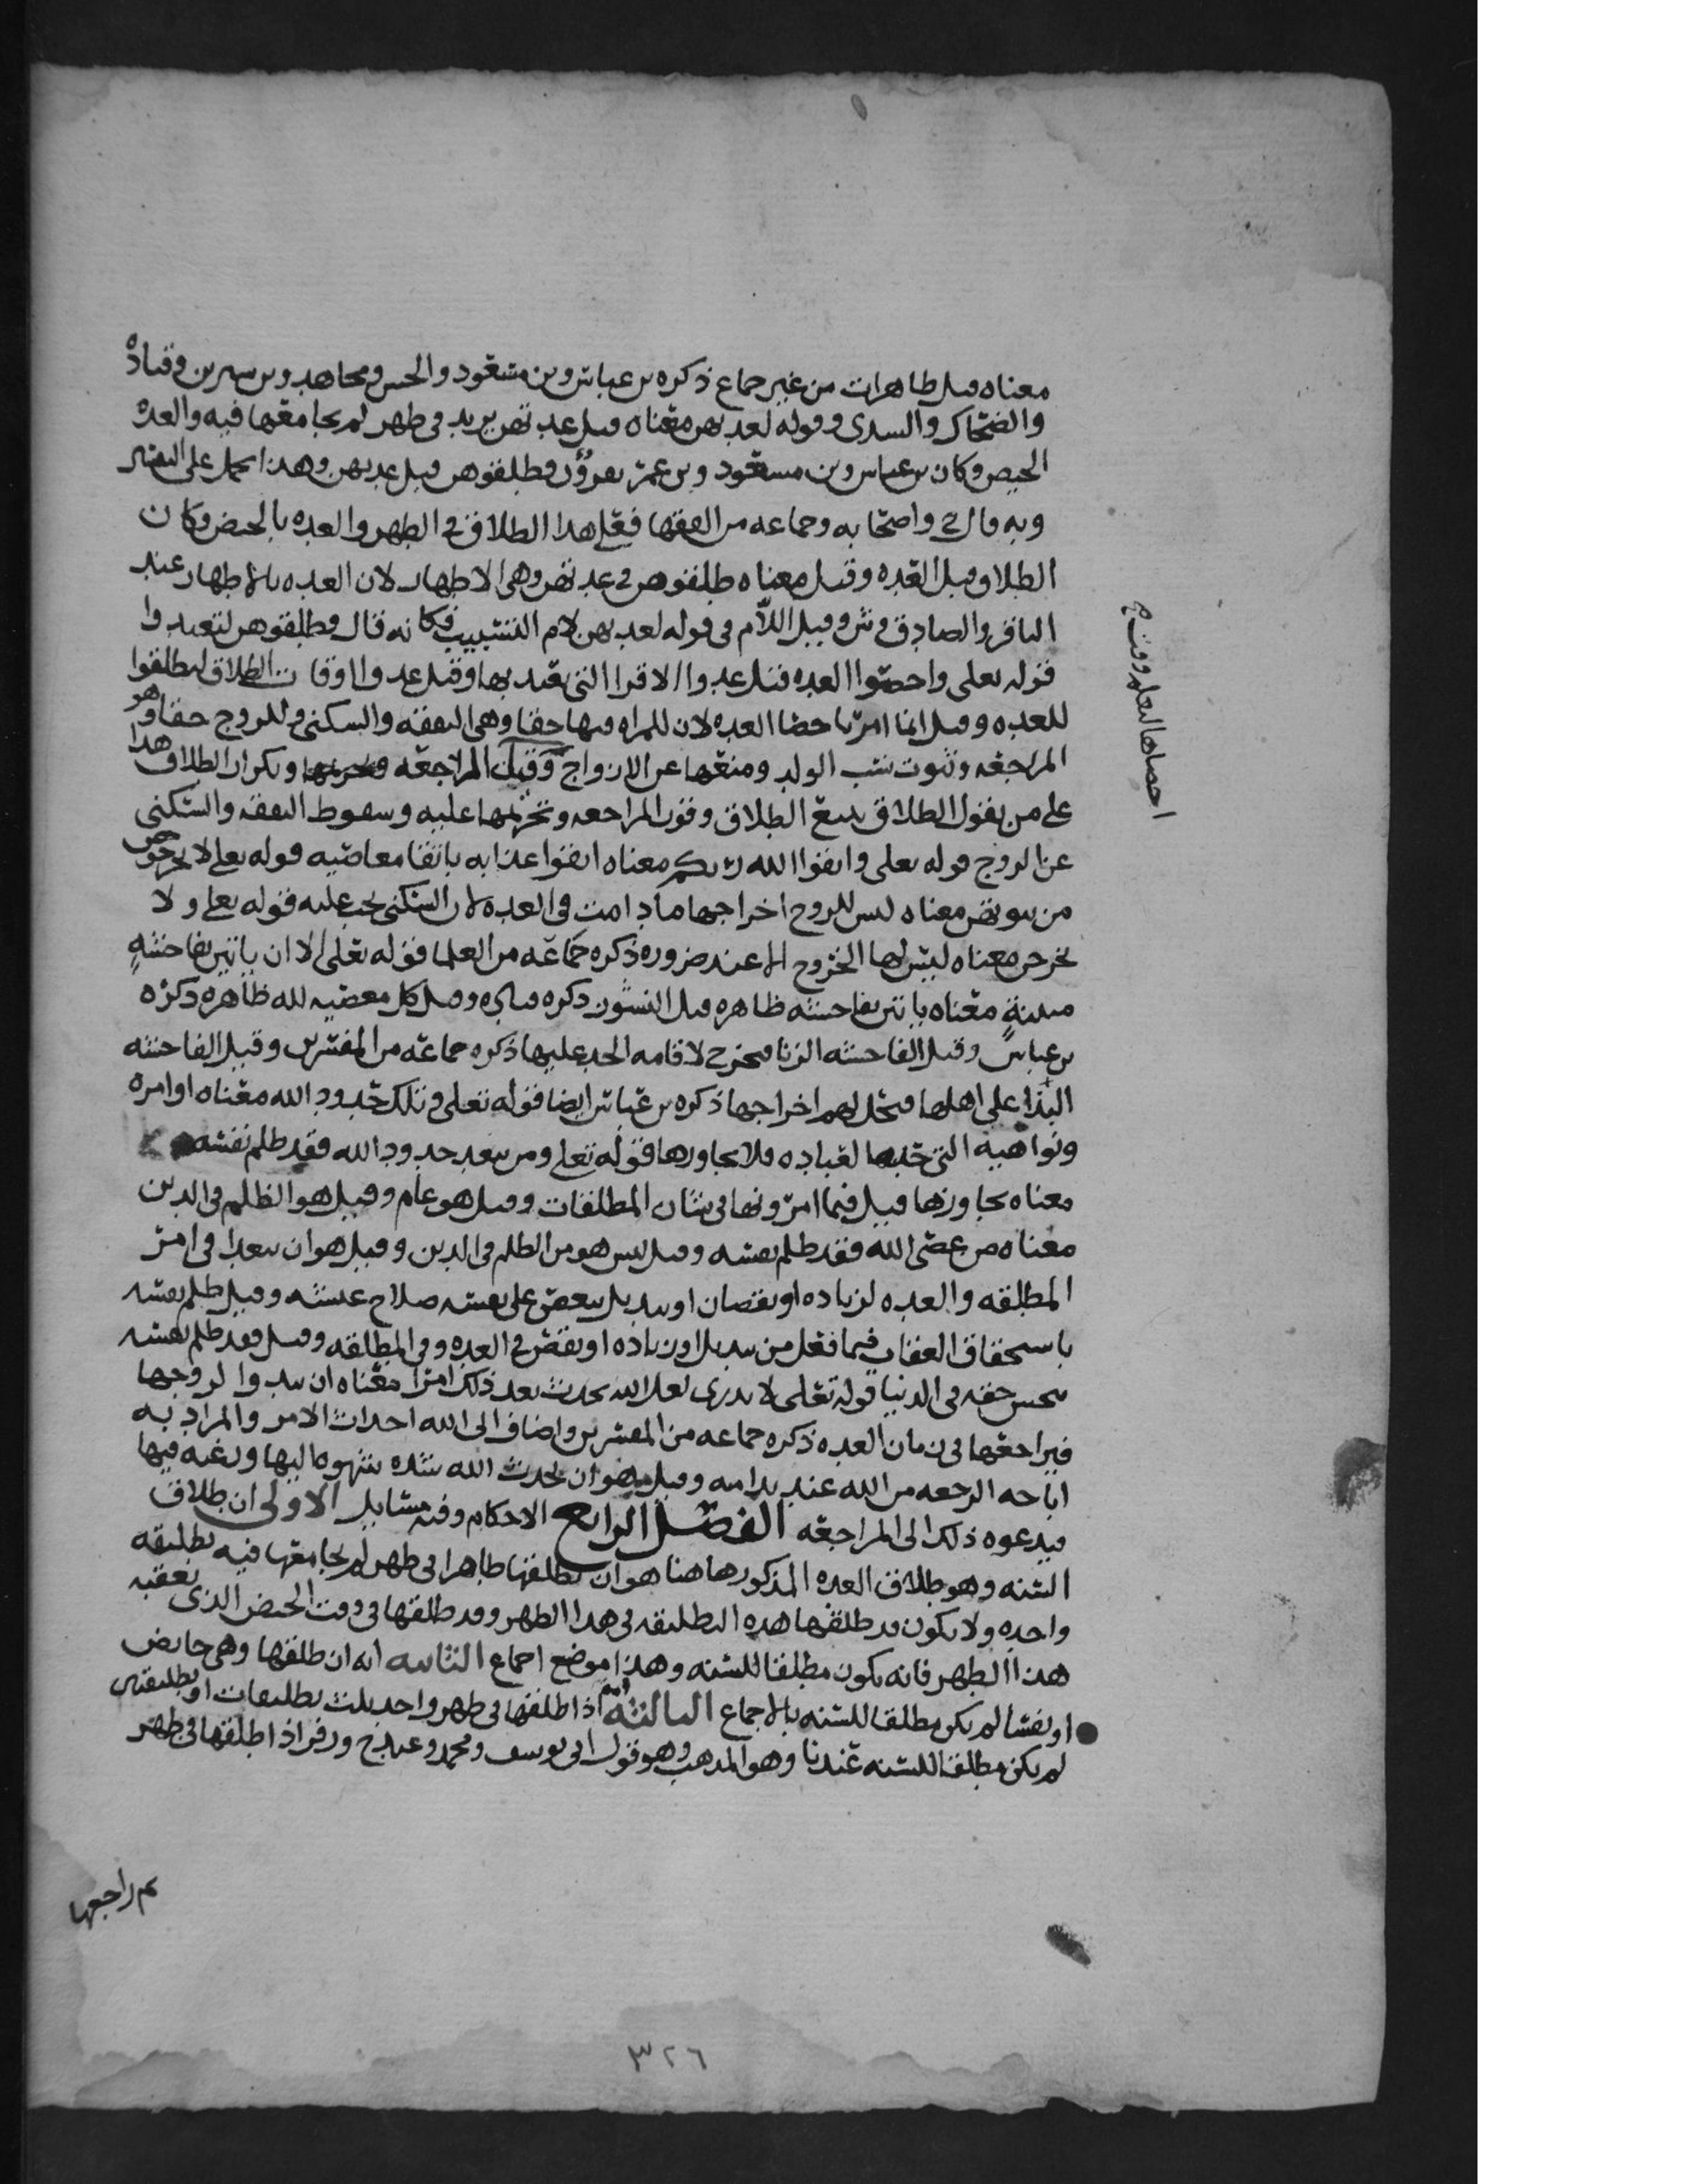 معناه قيل طاهرات من غير جماع ذكره بن عباس وبن مسعود والحسن ومجاهد وبن سيرين وقتادة
والضحاك والسدي وقوله لعدتهن معناه قبل عدتهن يريد في طهر لم يجامعها فيه والعده
الحيض وكان بن عباس وبن مسعود وبن عمر يقرؤن فطلقوهن قبل عدتهن وهذا يحمل على التفسير
وبه قال ح واصحابه وجماعه من الفقها فعلى هذا الطلاق في الطهر والعده بالحيض وكان
الطلاق قبل العده وقيل معناه طلقوهن في عدتهن وهي الاطهار لان العده بالاطهار عند
الباقر والصادق وش وقيل اللام في قوله لعدتهن لام التسبيب فكانه قال فطلقوهن لتعتدوا
قوله تعلى واحصوا العده قيل عدوا الاقرا التي تعتد بها وقيل عدوا اوقات الطلاق ليطلقوا
للعده وقيل انما امر باحصا العده لان للمراه فيها حقا وهي النفقه والسكنى وللزوج حقا وهو
المراجعه وثبوت نسب الولد ومنعها عن الازواج وقيل المراجعه وتحريمها ويكون الطلاق هذا
على من يقول الطلاق يتبع الطلاق وفوت المراجعه وتحريمها عليه وسقوط النفقه والسكنى
عن الزوج قوله تعلى واتقوا الله ربكم معناه اتقوا عذابه باتقا معاصيه قوله تعلى لا تخرجوهن
من بيوتهن معناه ليس للزوج اخراجها ما دامت في العده لان السكنى تجب عليه قوله تعلى ولا
يخرجن معناه ليس لها الخروج الا عند ضروره ذكره جماعه من العلما قوله تعلى الا ان ياتين بفاحشةٍ
مبينةٍ معناه ياتين بفاحشه ظاهره قيل النشوز ذكره قتاده وقيل كل معصيه لله ظاهره ذكره
بن عباس وقيل الفاحشه الزنا فتخرج لاقامه الحد عليها ذكره جماعه من المفسرين وقيل الفاحشه
البذا على اهلها فيحل لهم اخراجها ذكره بن عباس ايضا قوله تعلى وتلك حدود الله معناه اوامره
ونواهيه التي حدها لعباده فلا يجاوزها قوله تعلى ومن يتعد حدود الله فقد ظلم نفسه
معناه يجاوزها قيل فيما امر ونها في شان المطلقات وقيل هو عام وقيل هو الظلم في الدين
معناه من عصى الله فقد ظلم نفسه وقيل ليس هو من الظلم في الدين وقيل هو ان يتعدا في امر
المطلقه والعده لزياده او نقصان او تبديل ينقص على نفسه صلاح عيشه وقيل ظلم نفسه
باستحقاق العقاب فيما فعل من تبديل او زياده او نقص في العده وفي المطلقه وقيل فقد ظلم نفسه
ببخس حقه في الدنيا قوله تعلى لا تدري لعل الله يحدث بعد ذلك امرا معناه ان يبدوا لزوجها
فيراجعها في زمان العده ذكره جماعه من المفسرين واضاف الى الله احداث الامر والمراد به
اباحه الرجعه من الله عند ندامه وقيل هو ان يحدث الله شده شهوه اليها ورغبه فيها
فيدعوه ذلك الى المراجعه الفصل الرابع الاحكام وفيه مسايل الاولى ان طلاق
السنه وهو طلاق العده المذكور هاهنا هو ان يطلقها طاهرا في طهر لم يجامعها فيه تطليقه
واحده ولا يكون قد طلقها هذه التطليقه في هذا الطهر وقد طلقها في وقت الحيض الذي تعقبه
هذا الطهر فانه يكون مطلقا للسنه وهذا موضع اجماع الثانيه انه ان طلقها وهي حايض
او نفسا لم يكن مطلقا للسنه بالاجماع الثالثه انه اذا طلقها في طهر واحد بثلث تطليقات او تطليقتين
لم يكن مطلقا للسنه عندنا وهو المذهب وهو قول ابي يوسف ومحمد وعند ح وزفر اذا طلقها في طهر
ثم راجعها
احصاها ليعلم وقت
٣٢٦